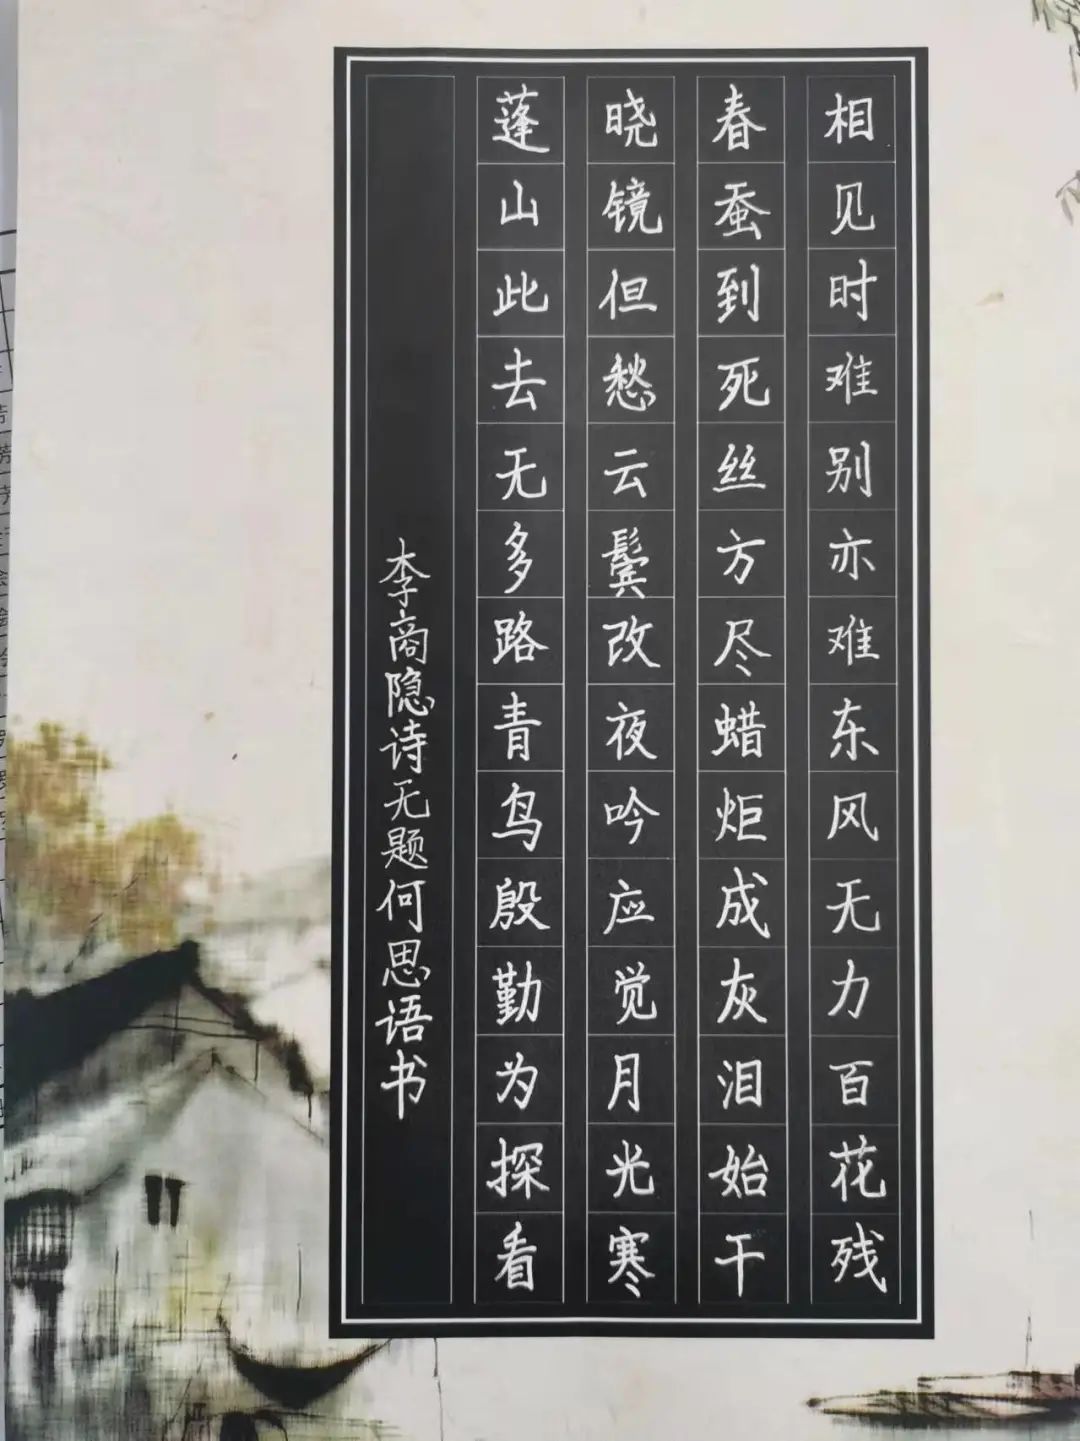 相见时难别亦难东风无力百花残
春蚕到死丝方尽蜡炬成灰泪始干
晓镜但愁云鬓改夜吟应觉月光寒
蓬山此去无多路青鸟殷勤为探看
李商隐诗无题何思语书